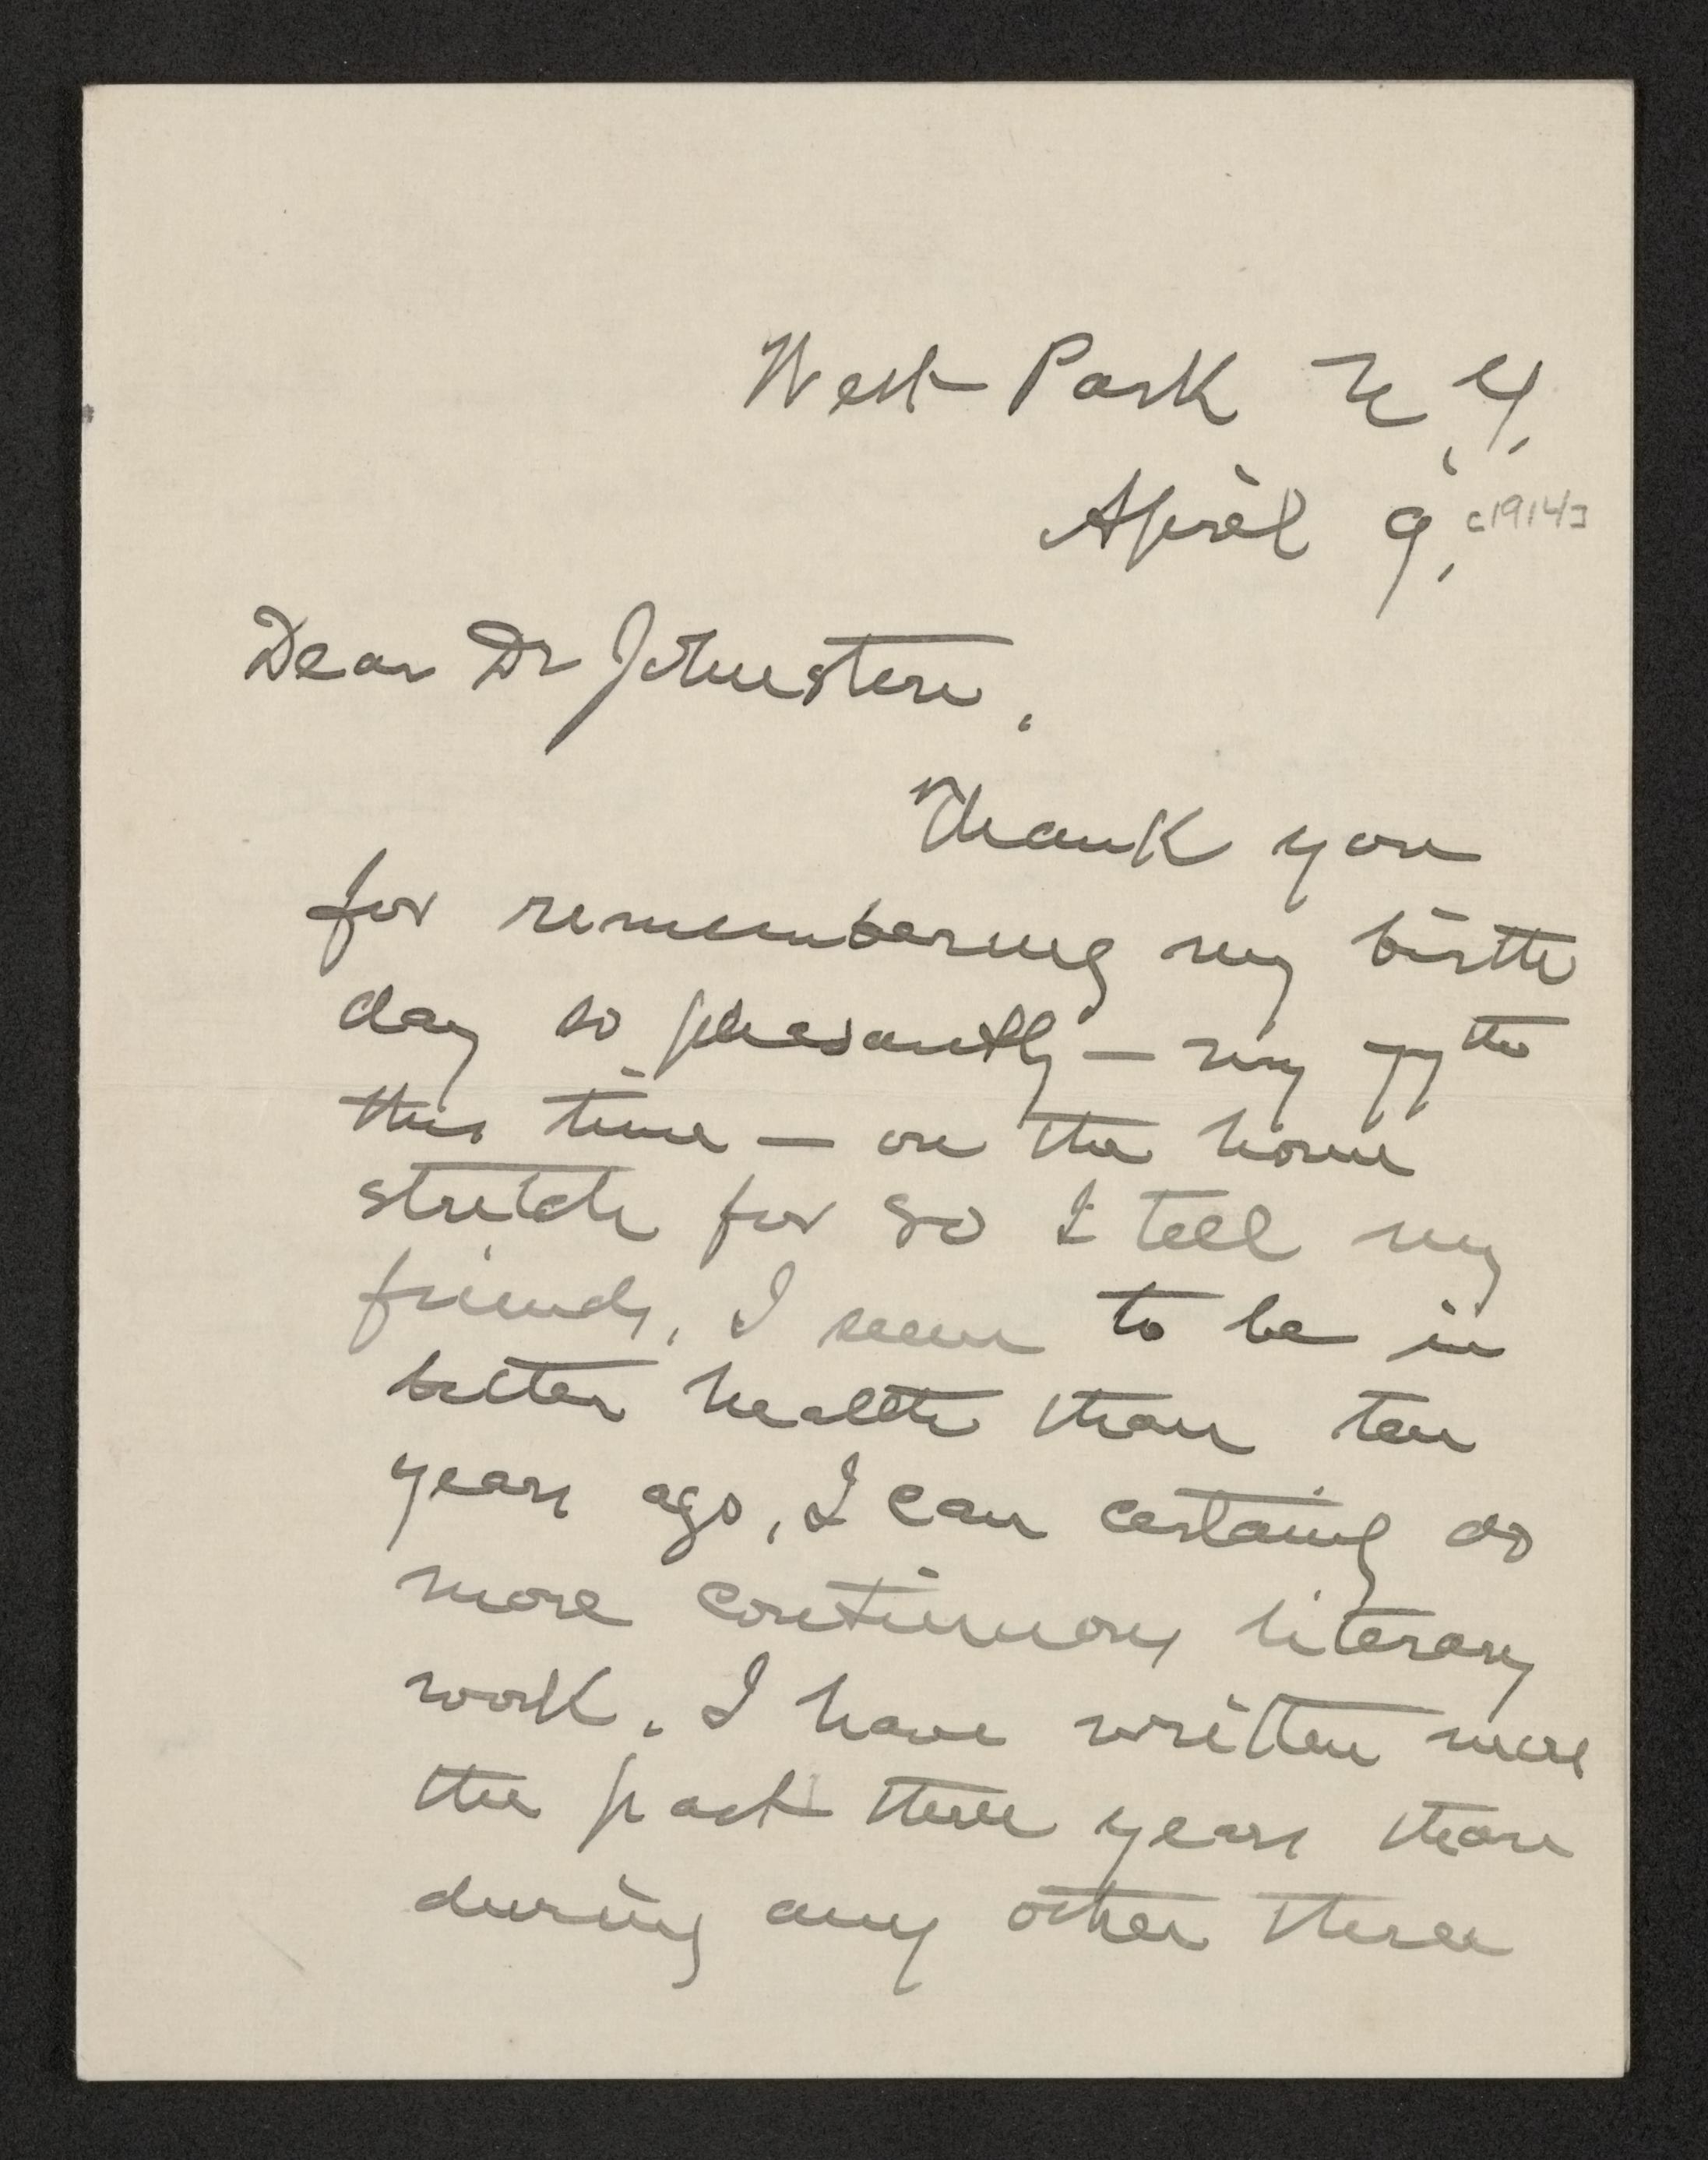 West Park N.Y.
April 9, [1914]
Dear Dr Johnston,
Thank you
for remembering my birth
day so pleasantly — my 77th
this time — on the home
stretch for 80 I tell my
friends. I seem to be in
better health than ten
years ago, I can certainly do
more continuous literary
work. I have written more
the past three years than
during any other three